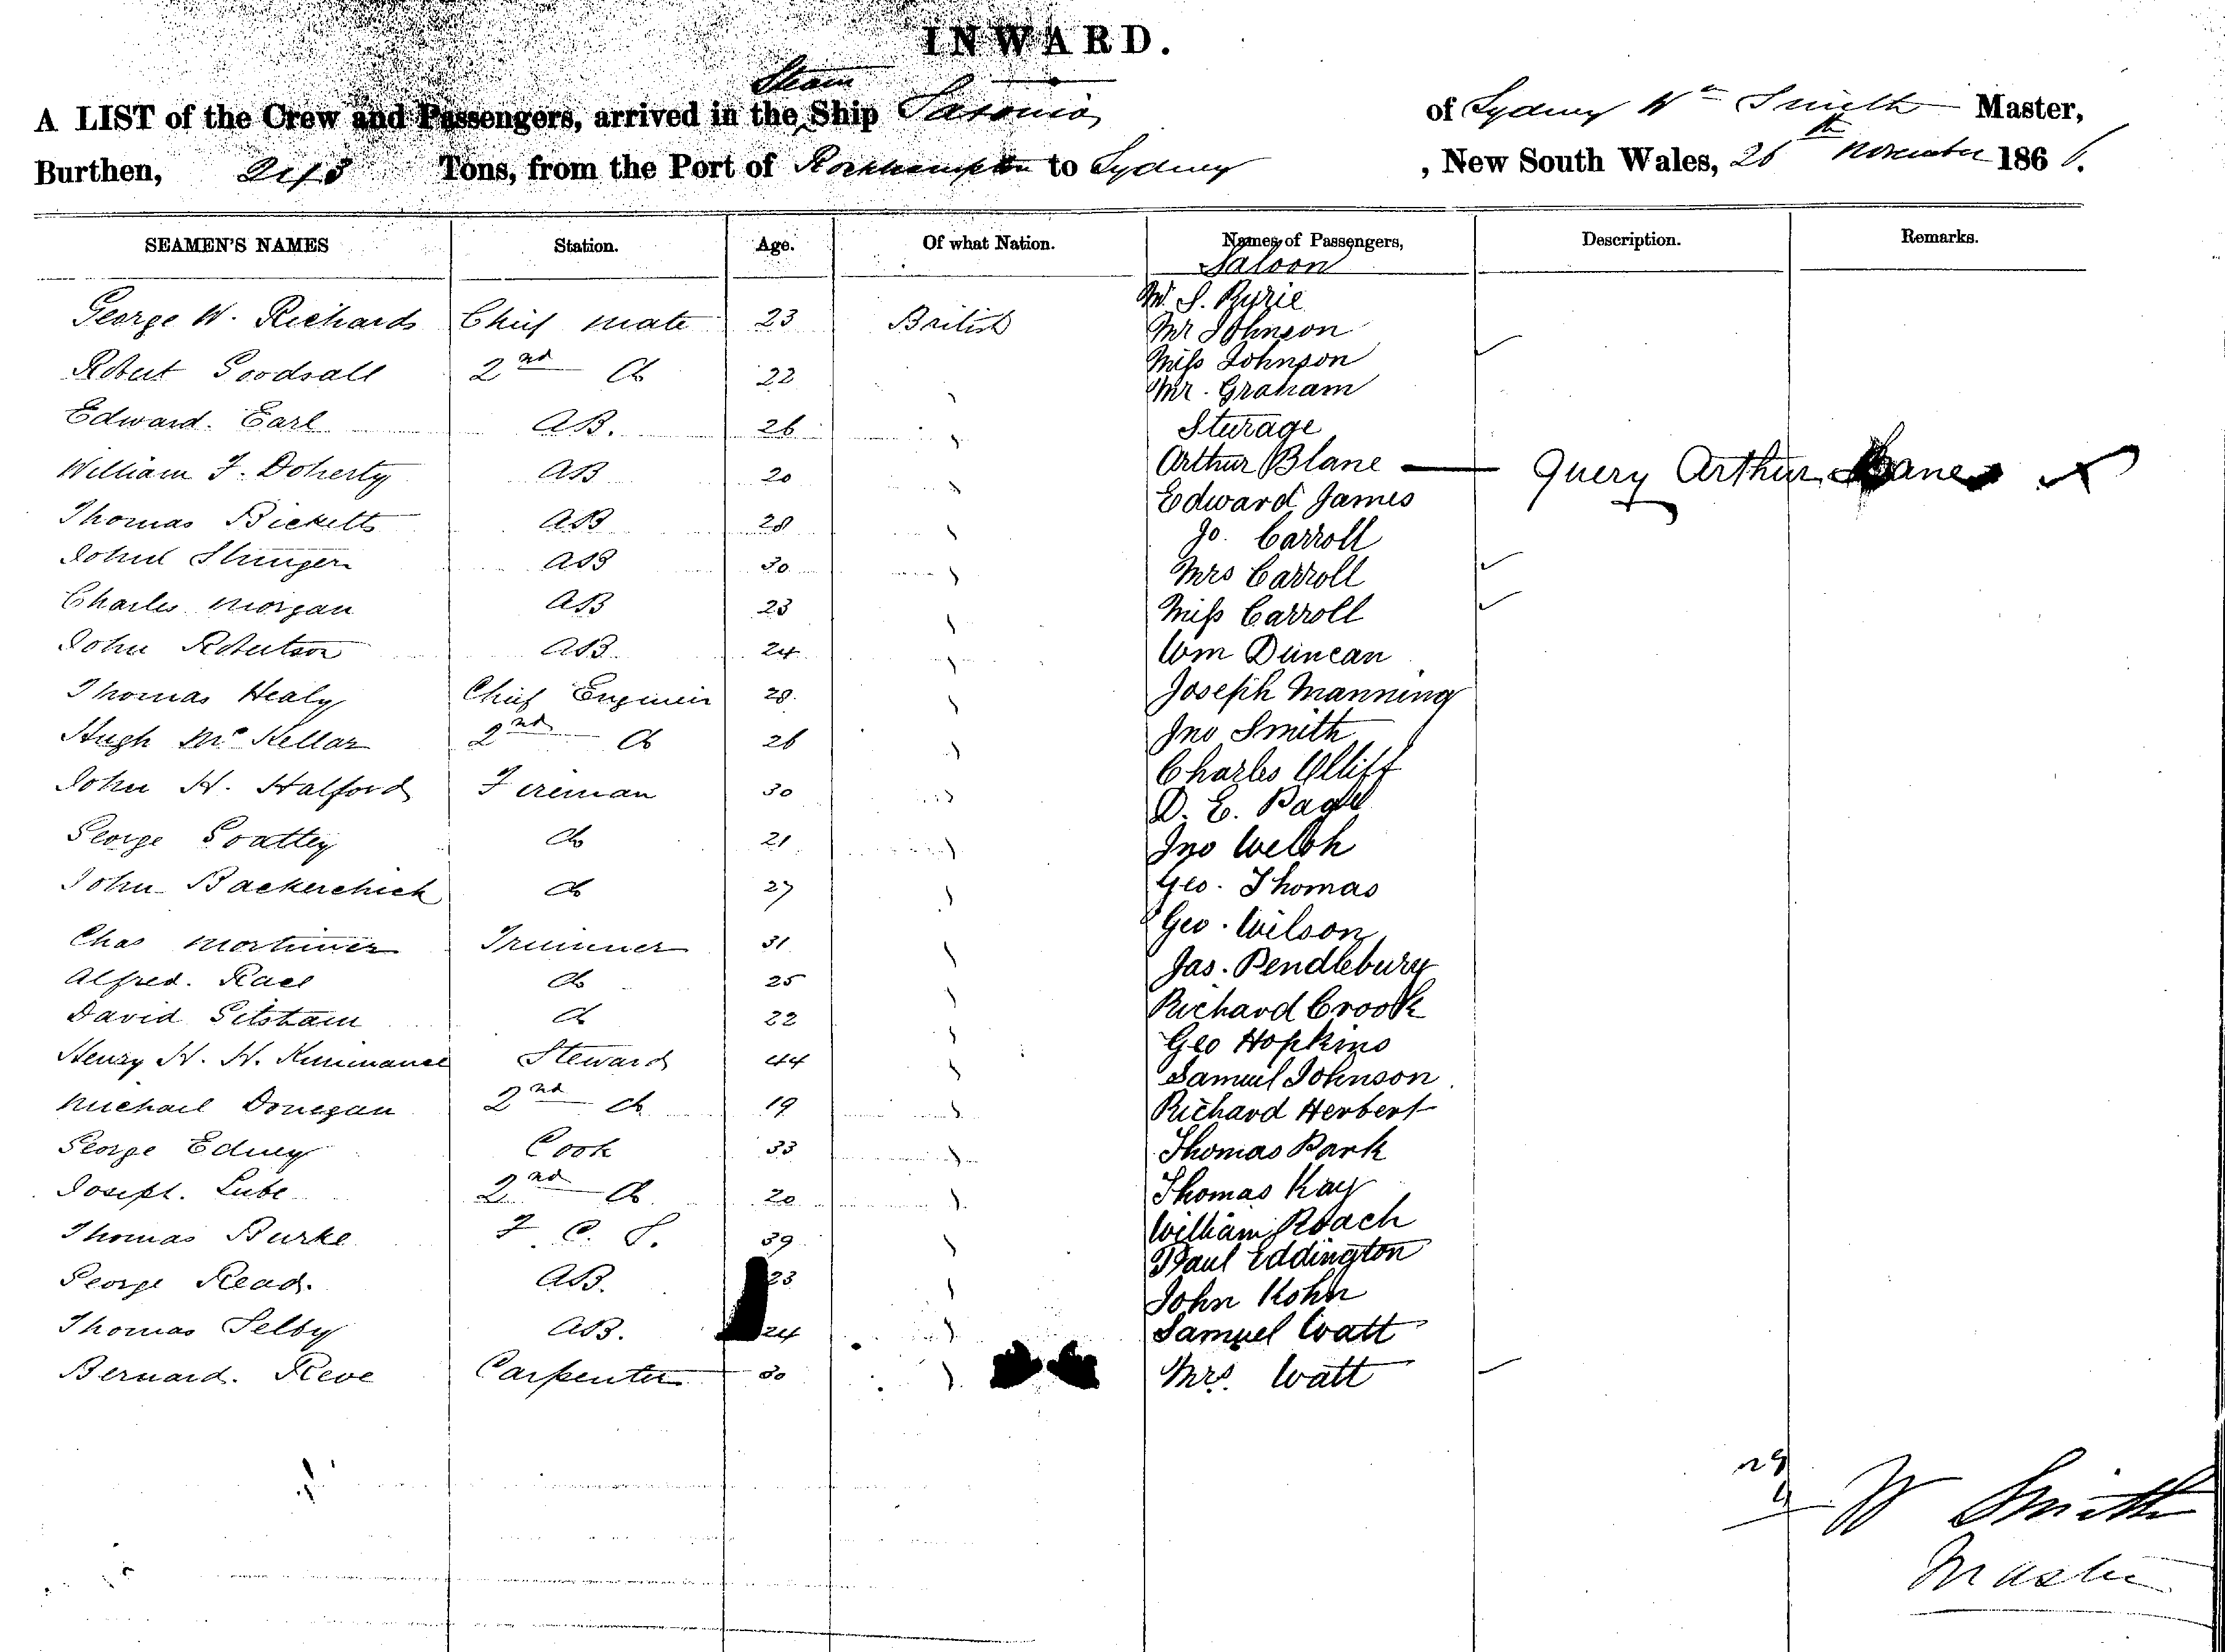 INWARD.
Steam
A LIST of the Crew and Passengers, arrived in the Ship Saxonia of Sydney Wm Smith Master,
Burthen, Tons, from the Port of Rockhampton to Sydney, New South Wales, 26th November 1866.
SEAMEN'S NAMES Station. Age. Of what Nation. Names of Passengers, Description. Remarks.
Saloon
George W. Richards Chief mate 23 British
Robert Goodsall 2nd do 22
Edward. Earl AB. 26
William F. Doherty AB 20
Thomas Ricketts AB 28
John AB 30
Charles Morgan AB 23
John Robertson AB. 24
Thomas Healy Chief Engineer 28
Hugh McKellar 2nd do 26
John H. Halford Fireman 30
George do 21
John do 27
Chas Mortimer Trimmer 31
Alfred. do 25
David Gitsham do 22
Henry H. H. Steward 44
Michael Donegan 2nd do 19
George Edney Cook 33
Joseph. Lube 2nd do 20
Thomas Burke F. C. S. 39
George Read. AB. 23
Thomas Selby AB. 24
Bernard. Reve Carpenter 30
Mr. S. Ryrie
Mr Johnson
Miss Johnson
Mr. Graham
Sturage
Arthur Blane — Query Arthur Lane
Edward James
Jo. Carroll
Mrs Carroll
Miss Carroll
Wm Duncan
Joseph Manning
Jno Smith
Charles Olliff
D. E. Page
Jno Welsh
Geo. Thomas
Geo. Wilson
Jas. Pendlebury
Richard Crook
Geo Hopkins
Samuel Johnson
Richard Herbert
Thomas Park
Thomas Kay
William Roach
Paul Eddington
John Kohn
Samuel Watt
Mrs. Watt
29
4
W Smith
Master